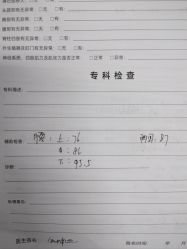 头颈部有无异常：□无 □有
胸部有无异常：□无 □有
腹部有无异常：□无 □有
脊柱四肢有无异常：□无 □有
外生殖器及肛门有无异常：□无 □有
神经系统：四肢肌力及肌张力是否正常 □正常 □异常
专科检查
专科描述：
辅助检查： 腰：上：76 臀围：87
中：86
下：93.5
诊断：
处理意见：
医生签名：